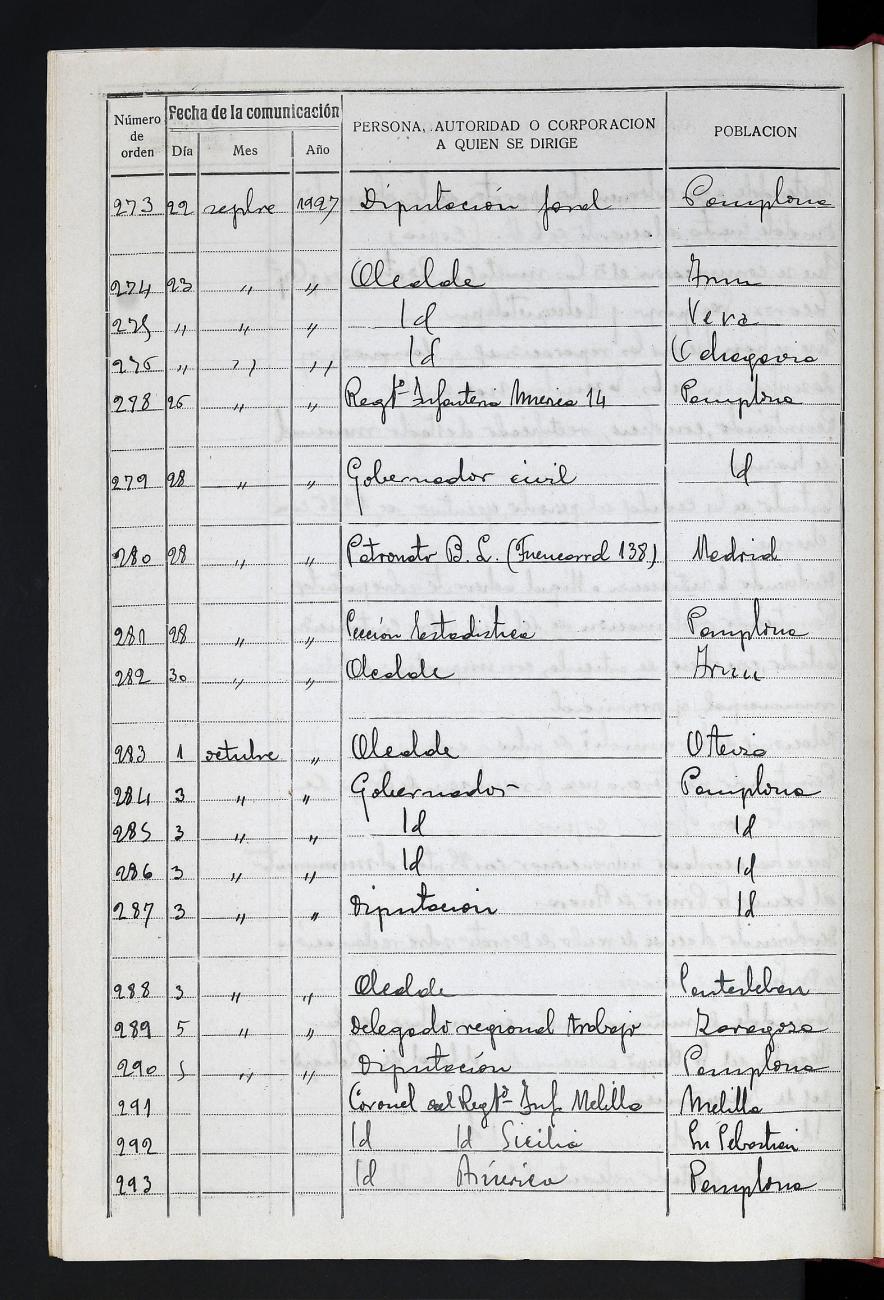 Número de orden Fecha de la comunicación PERSONA, AUTORIDAD O CORPORACION A QUIEN SE DIRIGE POBLACION
Día Mes Año
273 22 sepbre 1927 Diputación foral Pamplona
274 23 " " Alcalde Irun
275 " " " Id Vera
276 " " " Id Ochagavia
278 26 " " Regto Infanteria America 14 Pamplona
279 28 " " Gobernador civil Id
280 28 " " Patronato B. L. (Fuencarral 138) Madrid
281 28 " " Sección Estadistica Pamplona
282 30 " " Alcalde Irun
283 1 octubre " Alcalde Oteiza
284 3 " " Gobernador Pamplona
285 3 " " Id Id
286 3 " " Id Id
287 3 " " Diputacion Id
288 3 " " Alcalde Santesteban
289 5 " " Delegado regional Trabajo Zaragoza
290 5 " " Diputación Pamplona
291 Coronel del Regto Inf. Melilla Melilla
292 Id Id Sicilia Sn Sebastian
293 Id América Pamplona